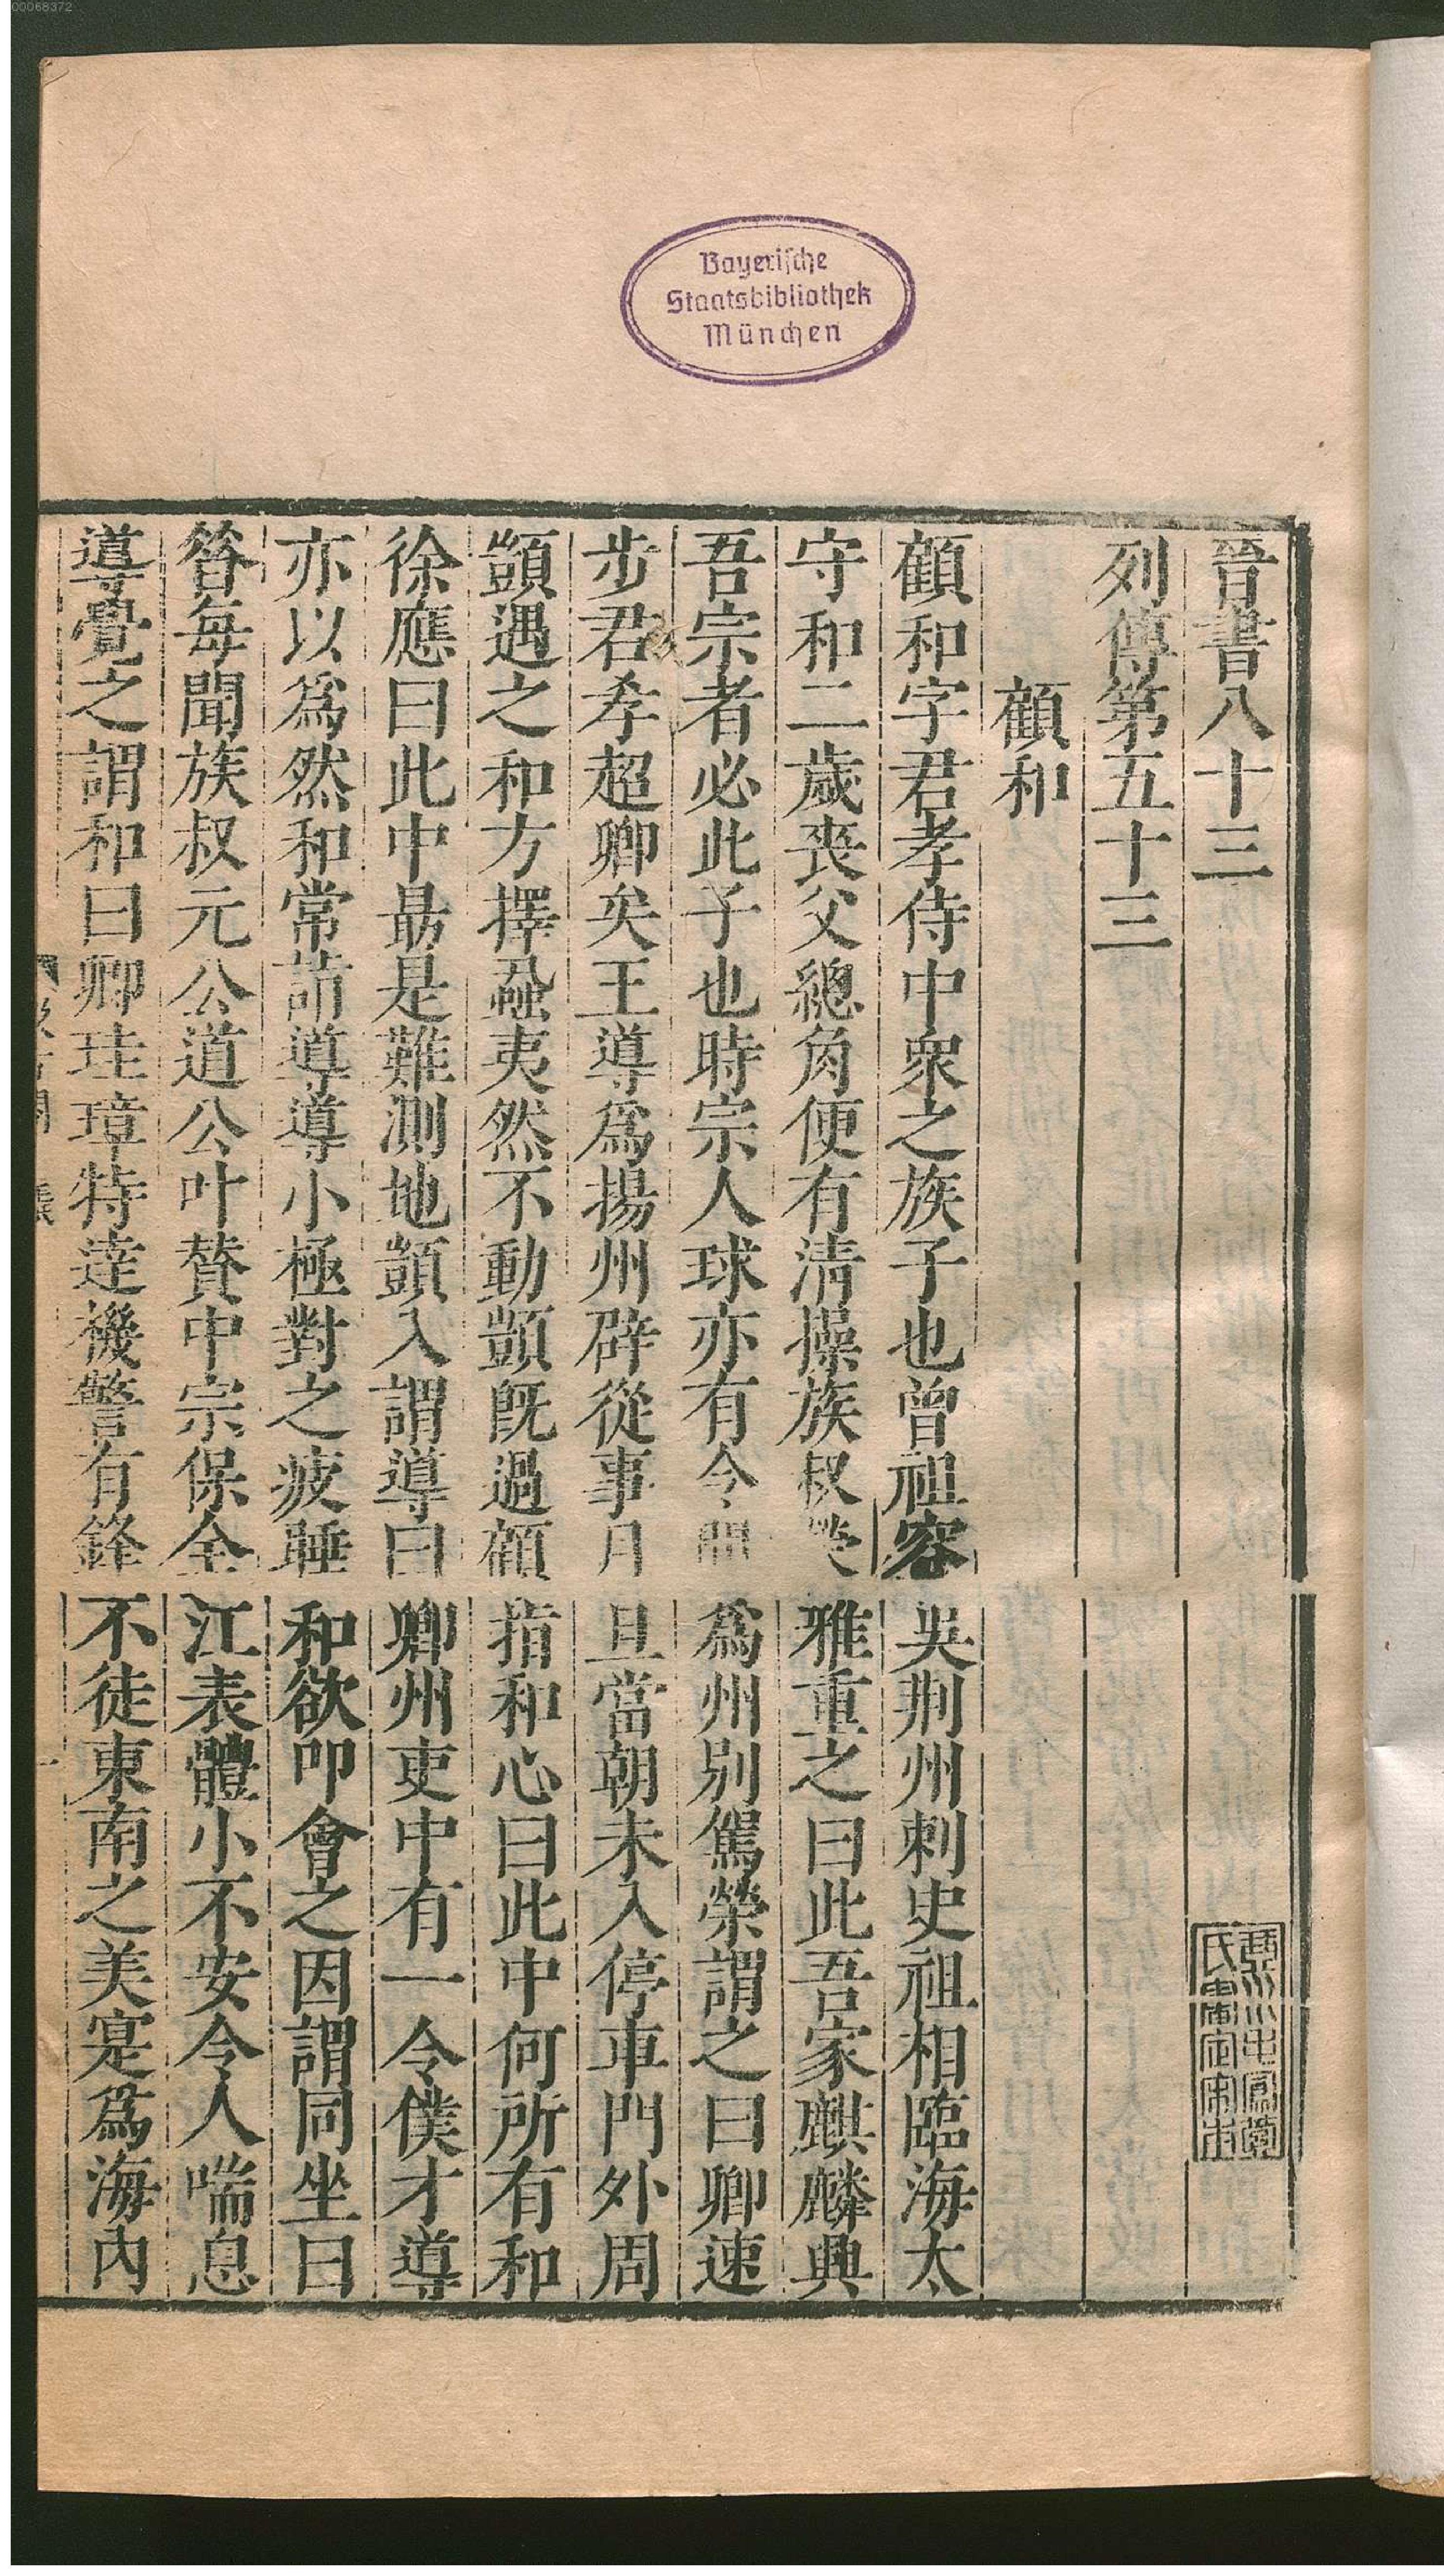 00068372
Bayerische
Staatsbibliothek
München
晉書八十三
列傳第五十三
顧和
顧和字君孝侍中衆之族子也曾祖容吳荆州刺史祖相臨海太
守和二歲喪父總角便有清操族叔榮雅重之曰此吾家麒麟興
吾宗者必此子也時宗人球亦有令聞爲州別駕榮謂之曰卿速
步君孝超卿矣王導爲揚州辟從事月旦當朝未入停車門外周
顗遇之和方擇蝨夷然不動顗旣過顧指和心曰此中何所有和
徐應曰此中最是難測地顗入謂導曰卿州吏中有一令僕才導
亦以爲然和常詣導導小極對之疲睡和欲叩會之因謂同坐曰
昝每聞族叔元公道公叶贊中宗保全江表體小不安令人喘息
導覺之謂和曰卿珪璋特達機警有鋒不徒東南之美寔爲海內